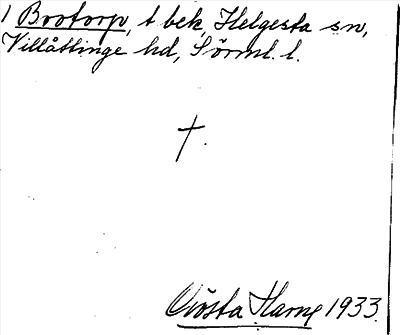 1 Brotorp, t bek, Helgesta sn,
Villåttinge hd, Sörml. l.
†.
Gösta Harne 1933.